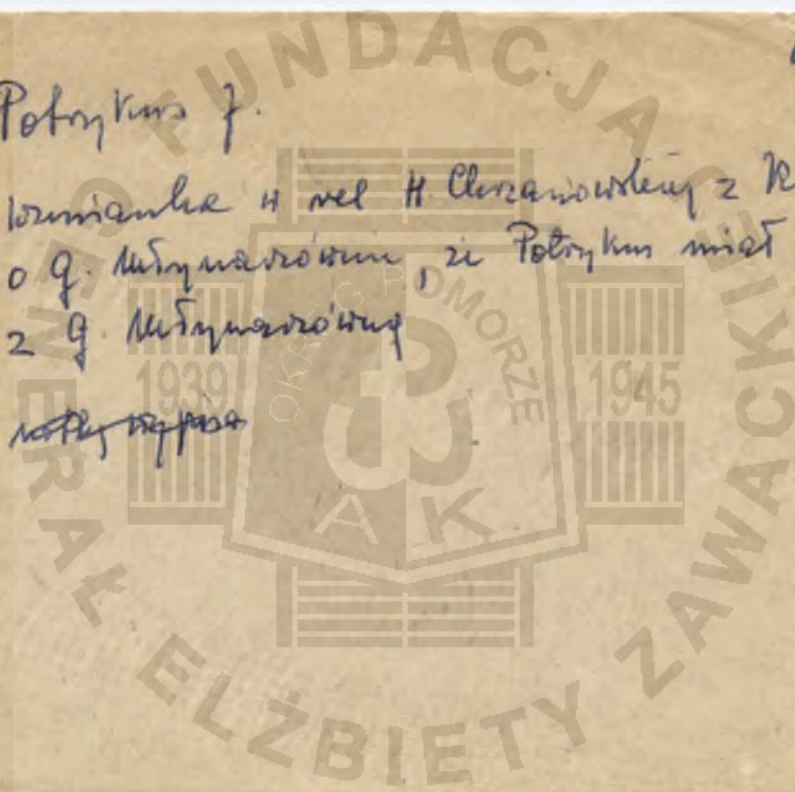 Potrykus J.
wzmianka w rel H. Chrzanowskiej z
o G. Młynarzównie, że Potrykus miał
z G. Młynarzówną
FUNDACJA GENERAŁ ELŻBIETY ZAWACKIEJ
OKRĘG POMORZE
1939 1945
AK